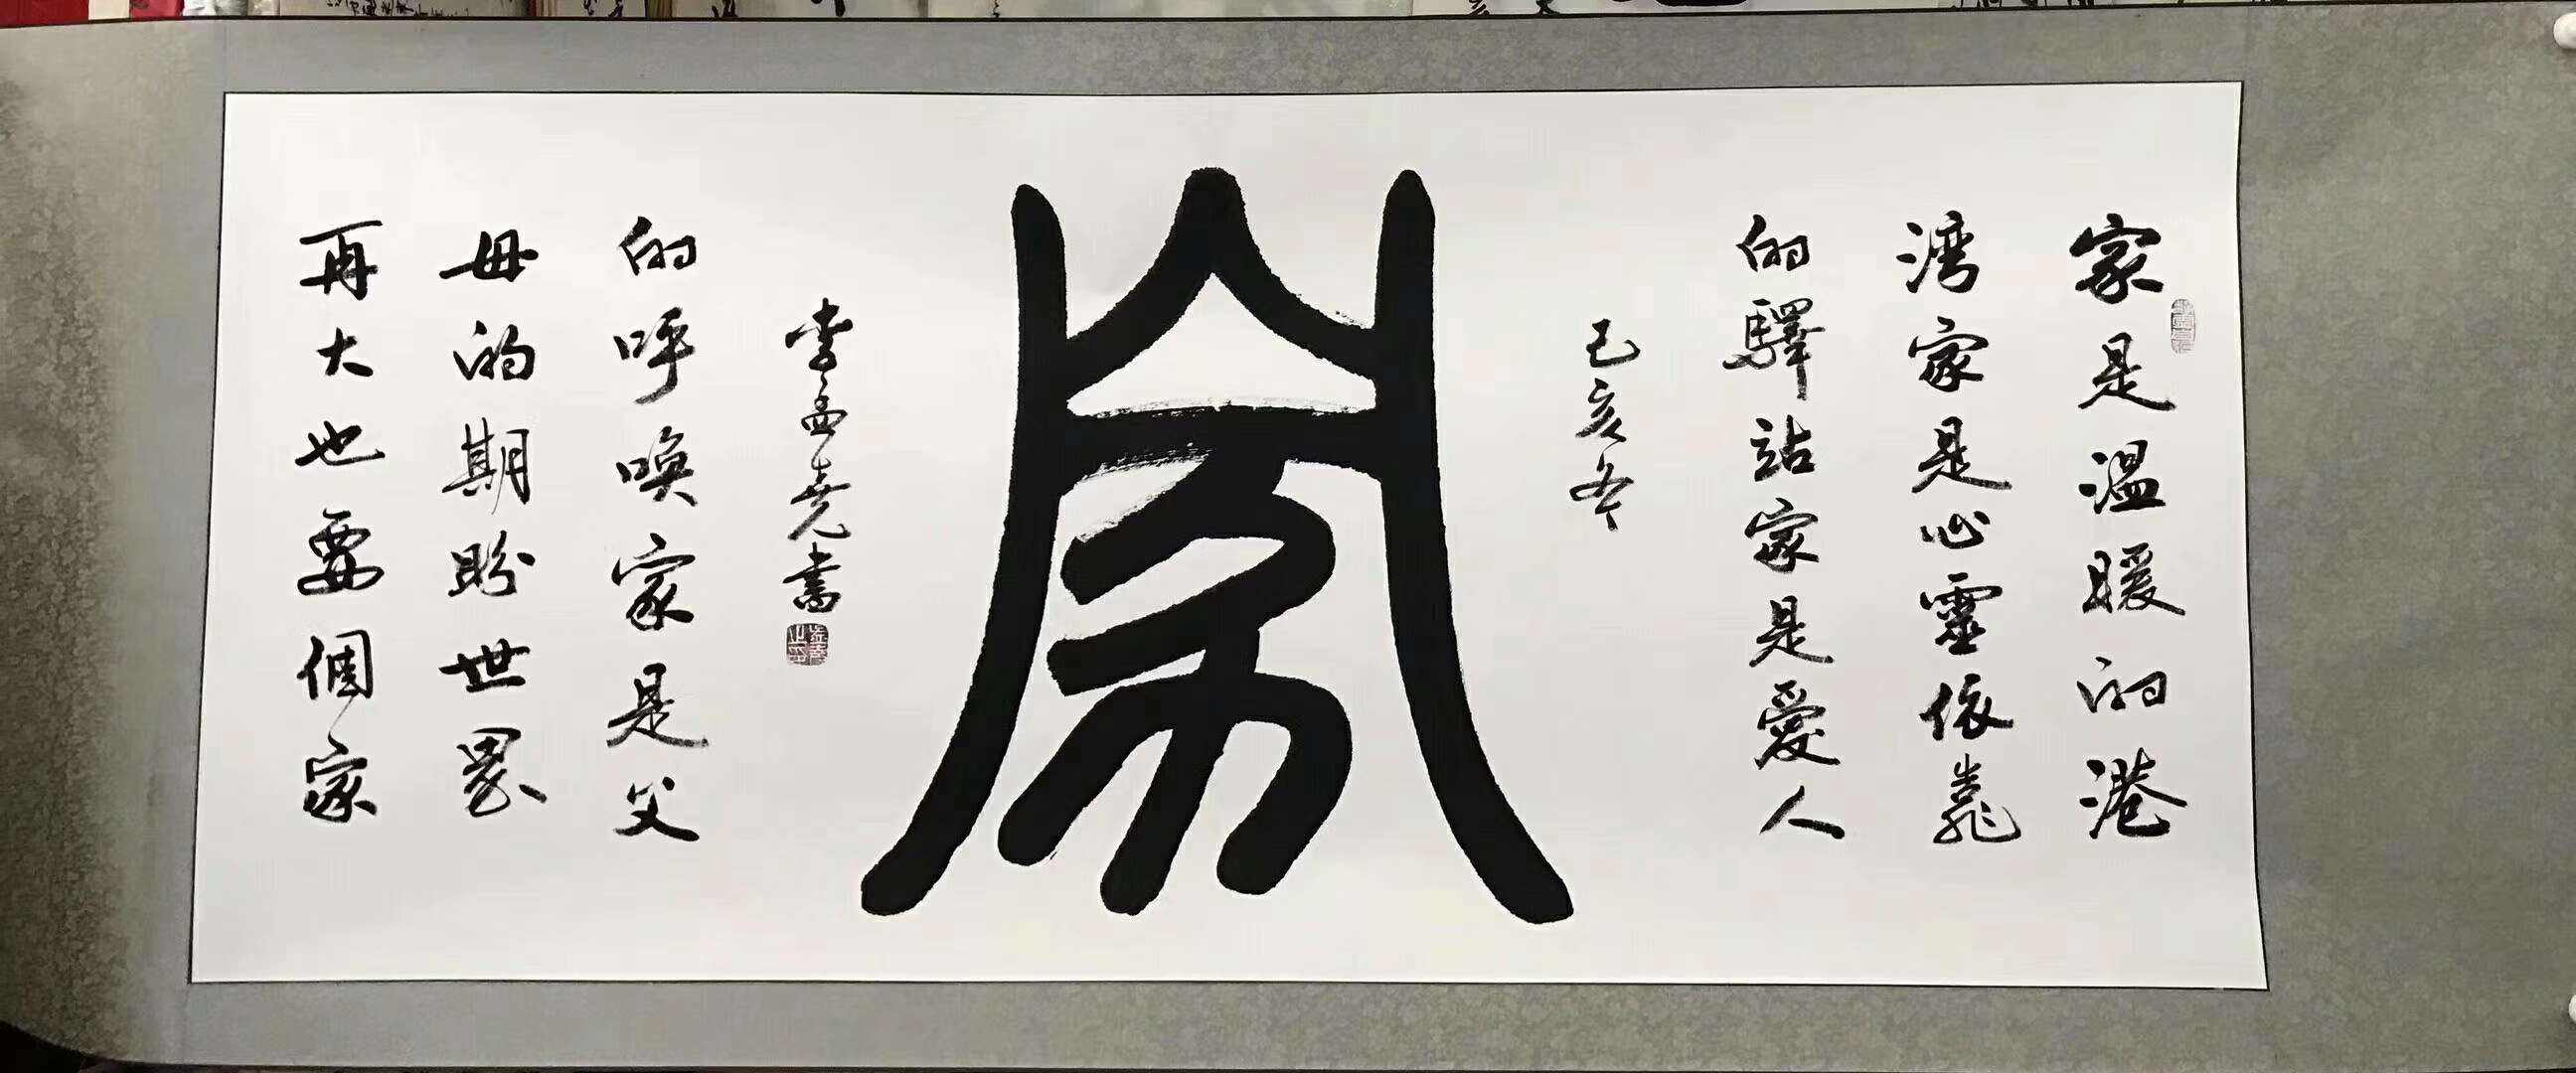 家是溫暖的港
湾家是心靈依靠
的驛站家是愛人
己亥冬
家
李孟尧書
的呼喚家是父
母的期盼世界
再大也要個家